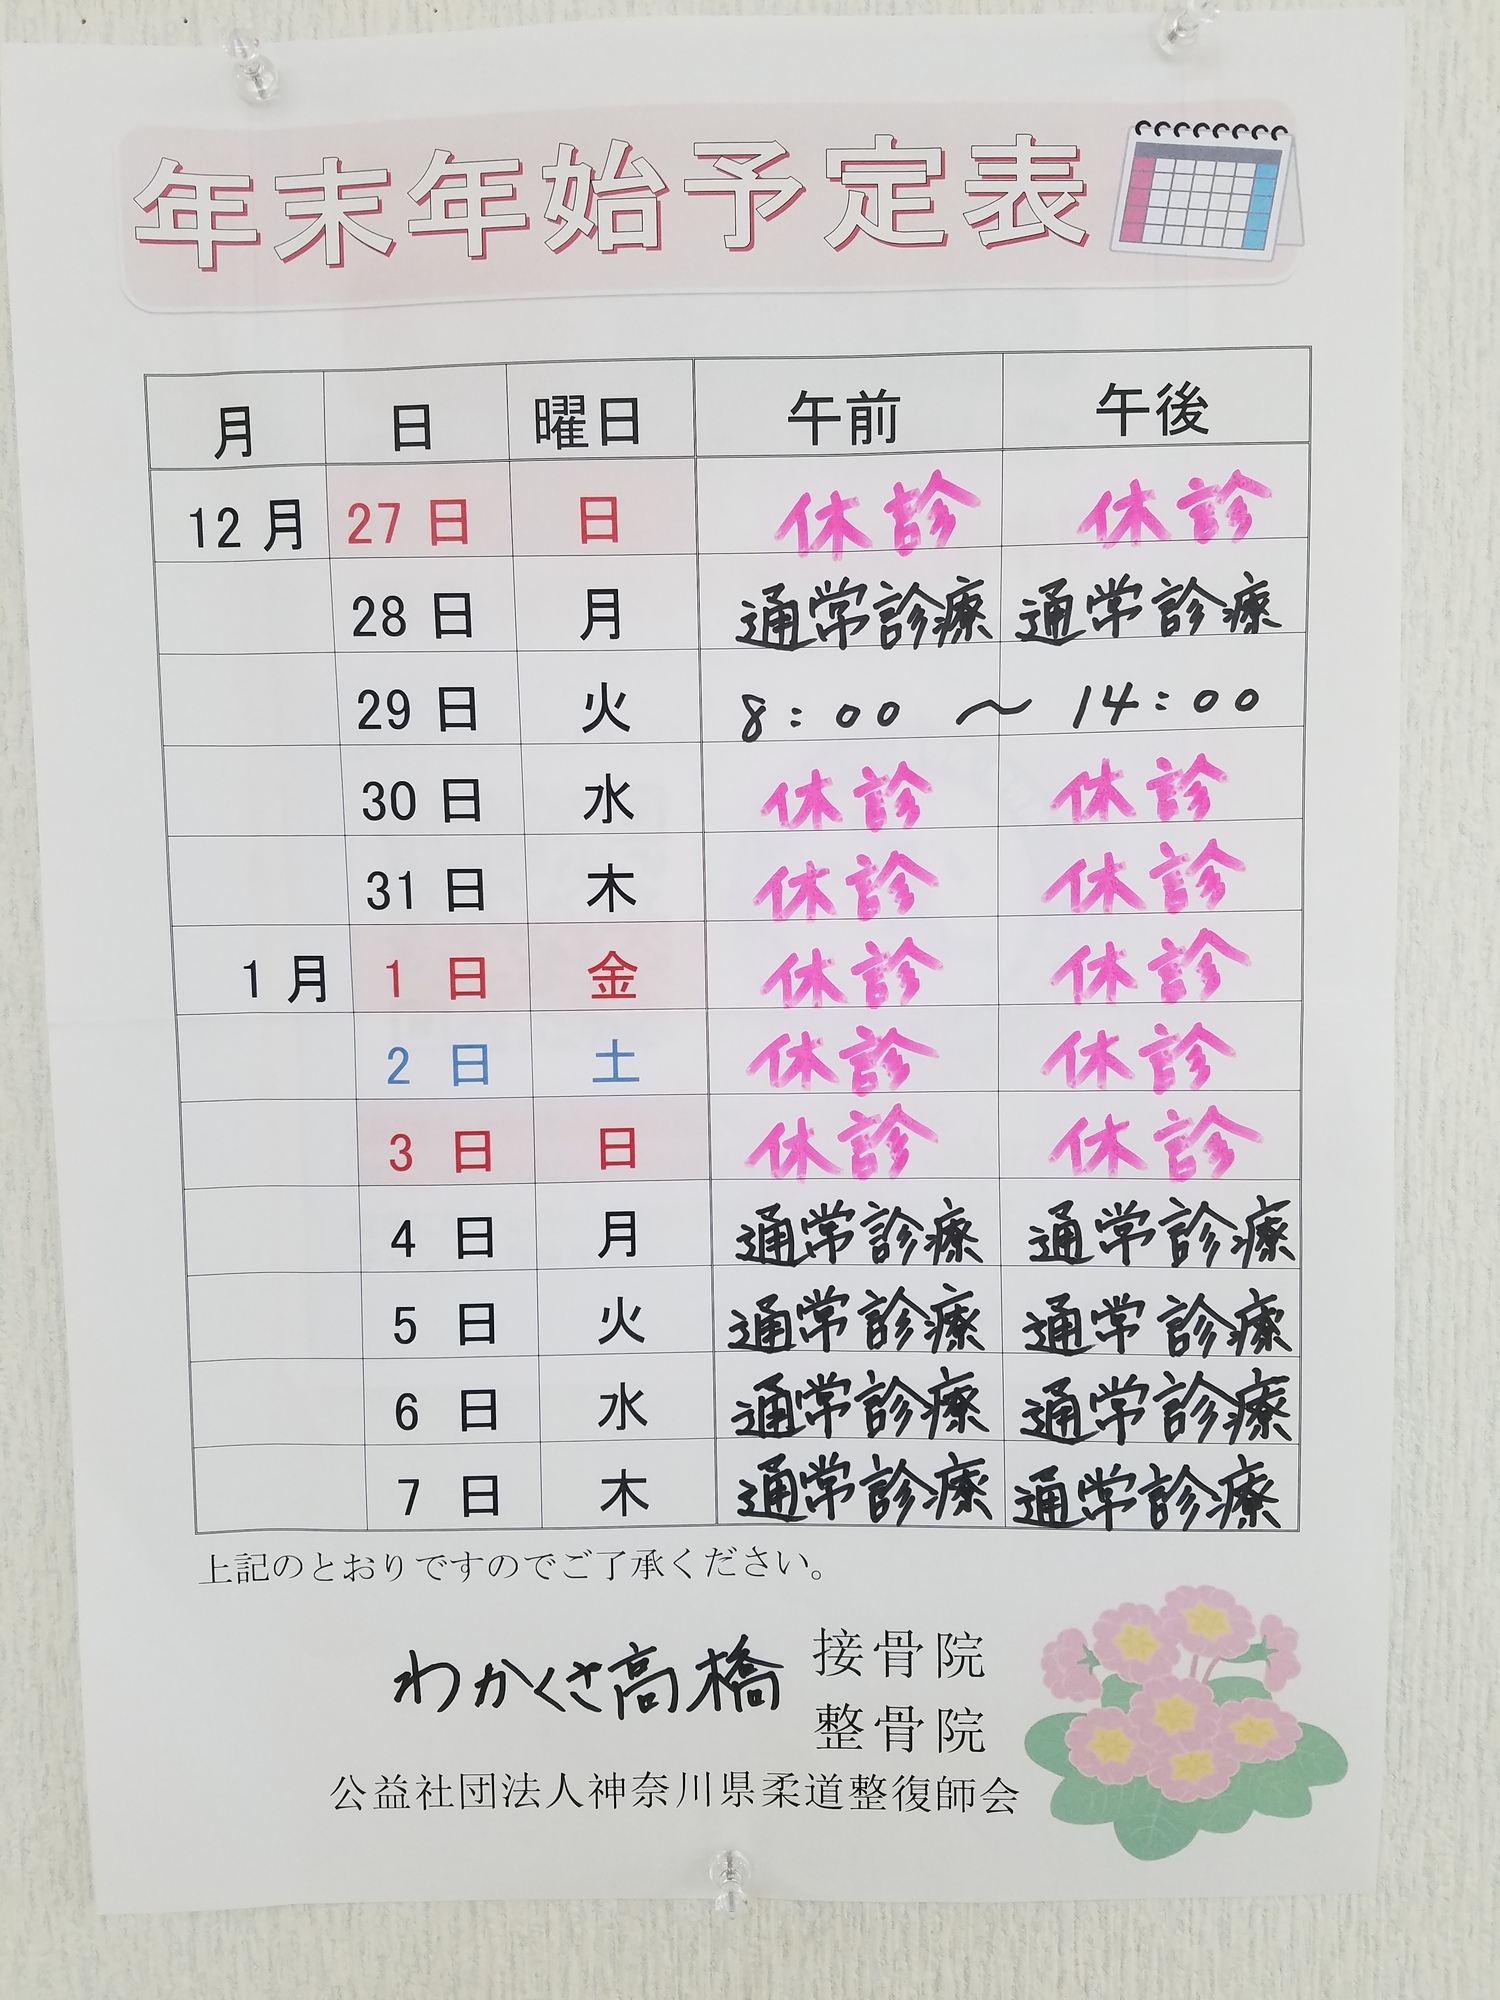 年末年始予定表
月 日 曜日 午前 午後
12月 27日 日 休診 休診
28日 月 通常診療 通常診療
29日 火 8:00 〜 14:00
30日 水 休診 休診
31日 木 休診 休診
1月 1日 金 休診 休診
2日 土 休診 休診
3日 日 休診 休診
4日 月 通常診療 通常診療
5日 火 通常診療 通常診療
6日 水 通常診療 通常診療
7日 木 通常診療 通常診療
上記のとおりですのでご了承ください。
わかくさ高橋 接骨院
整骨院
公益社団法人神奈川県柔道整復師会